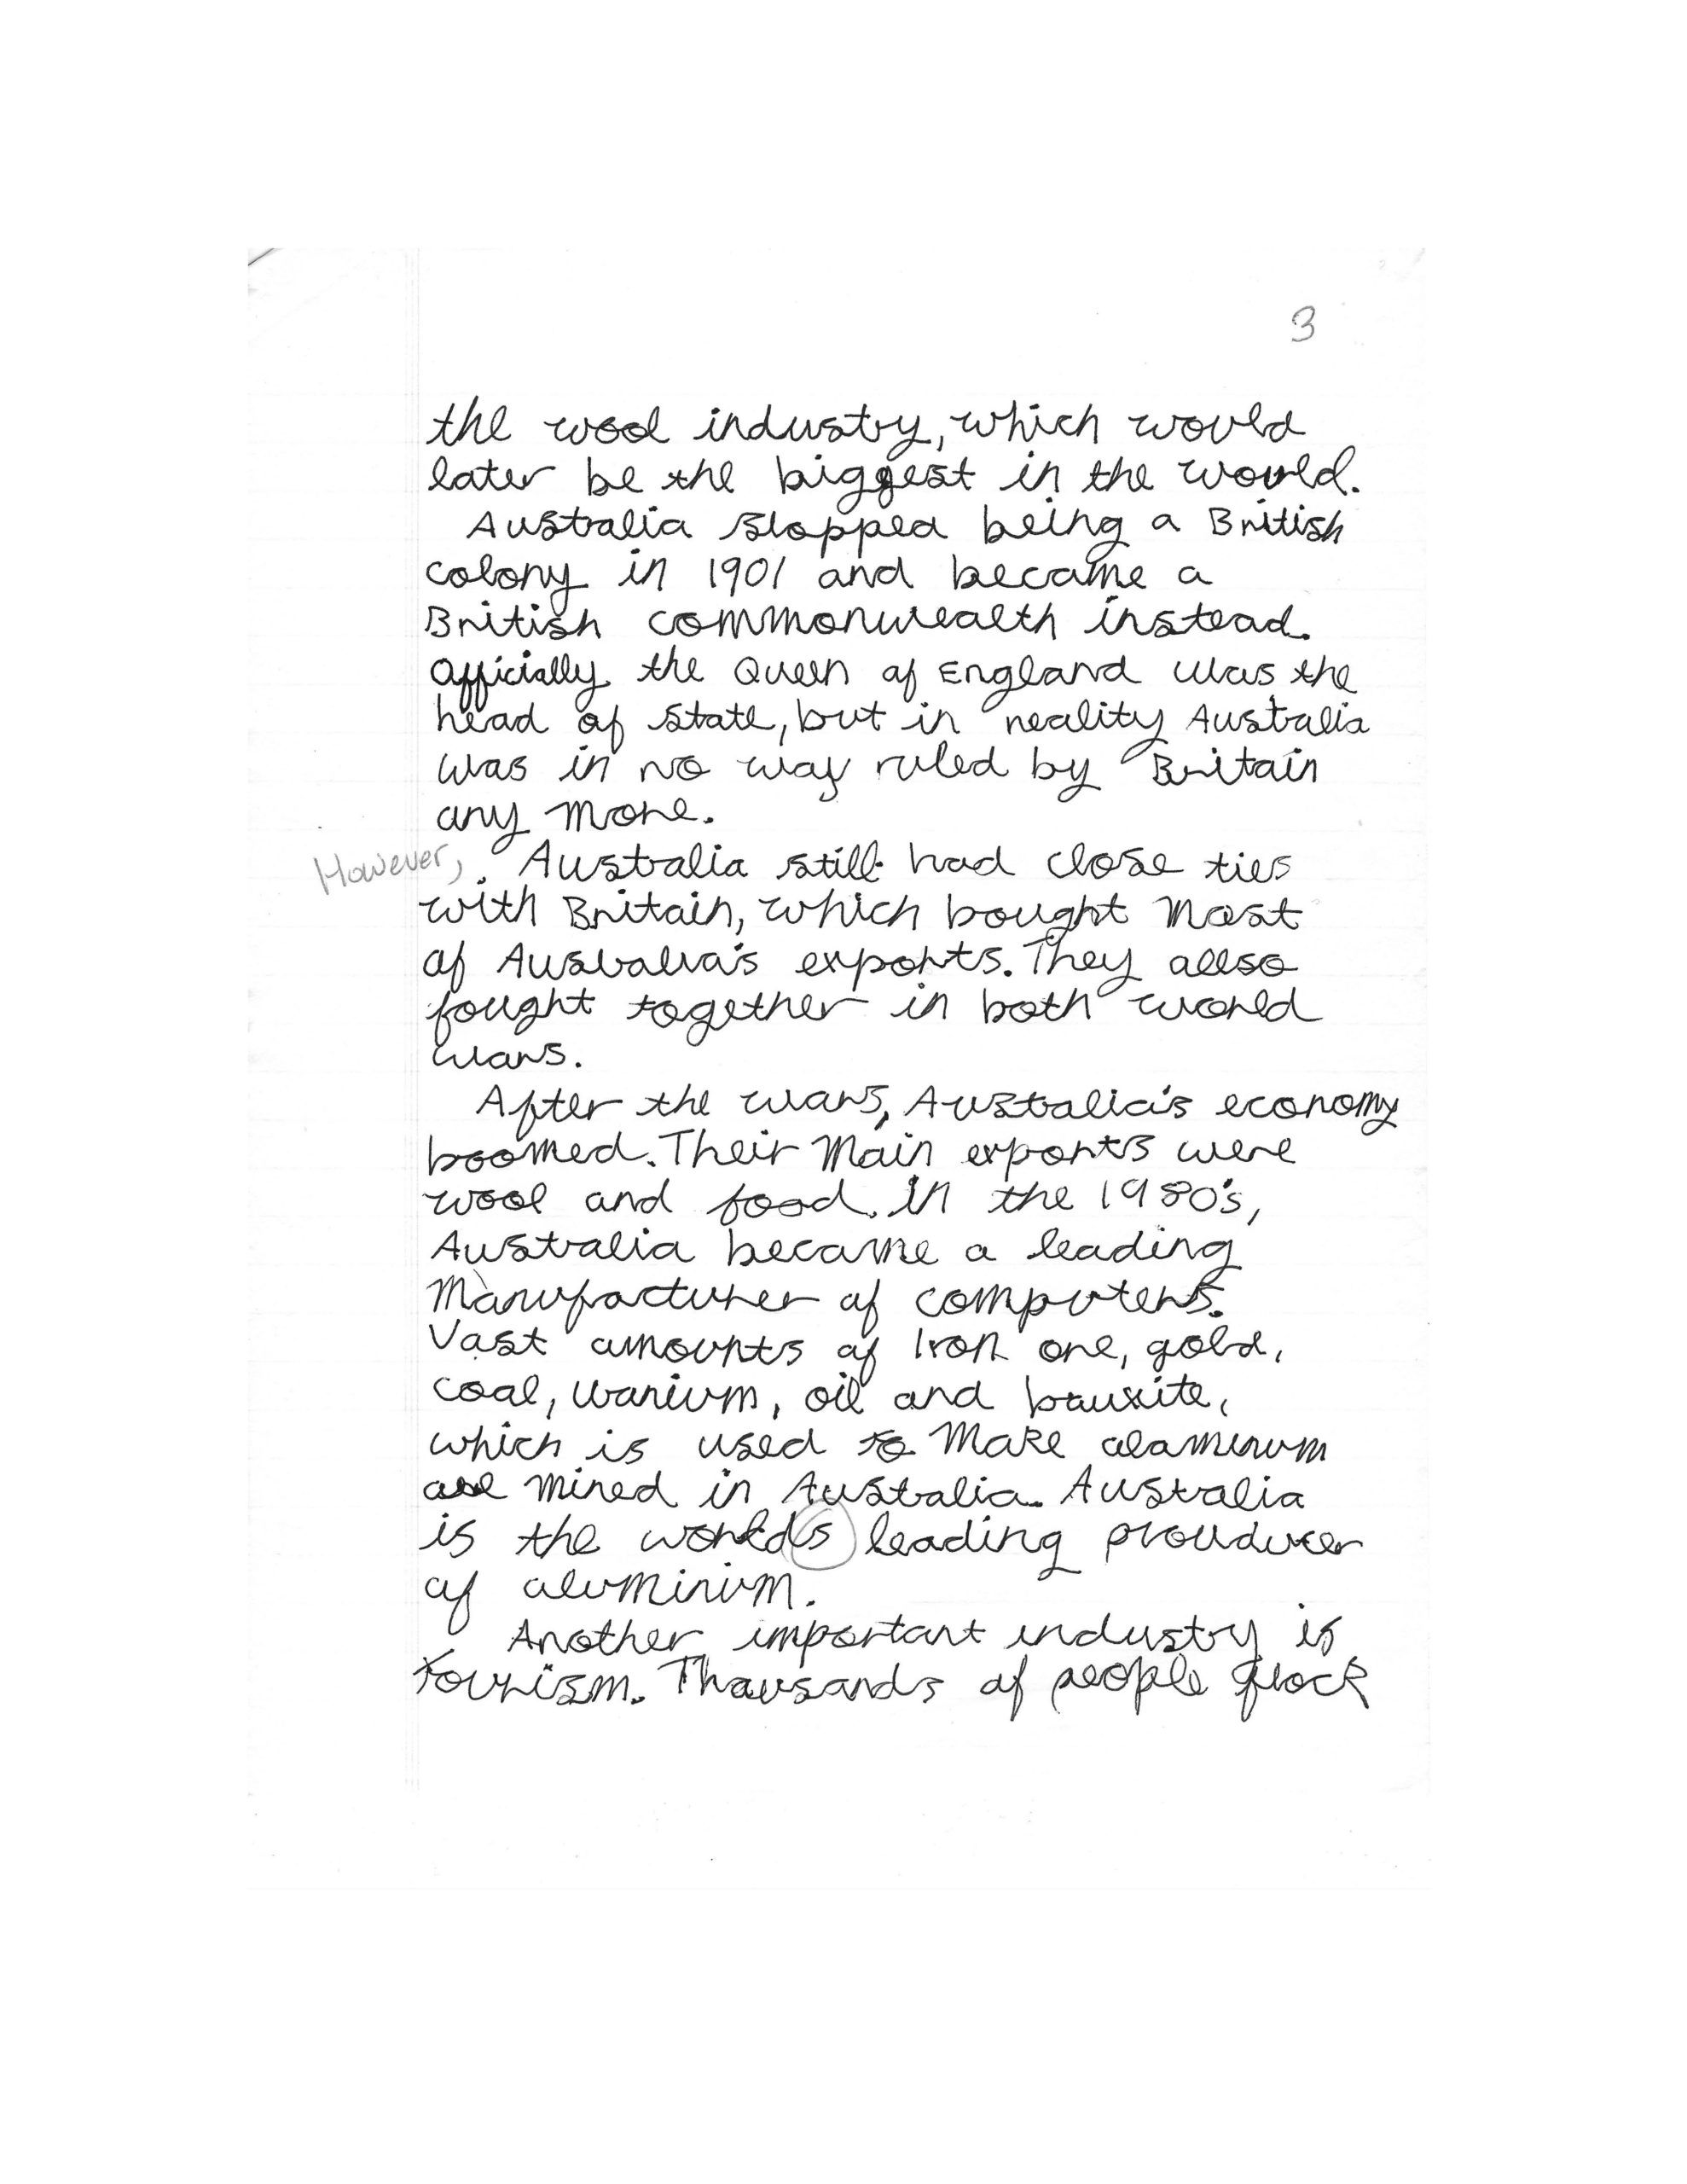 3
the wool industry, which would
later be the biggest in the world.
Australia stopped being a British
colony in 1901 and became a
British commonwealth instead.
Officially the Queen of England was the
head of state, but in reality Australia
was in no way ruled by Britain
any more.
However, Australia still had close ties
with Britain, which bought most
of Australia's exports. They allso
fought together in both world
wars.
After the wars, Australia's economy
boomed. Their main exports were
wool and food. In the 1980's,
Australia became a leading
manufacturer of computers.
Vast amounts of Iron ore, gold,
coal, uranium, oil and bauxite,
which is used to make alaminum
are mined in Australia. Australia
is the worlds leading prouducer
of aluminium.
Another important industry is
tourism. Thousands of people flock